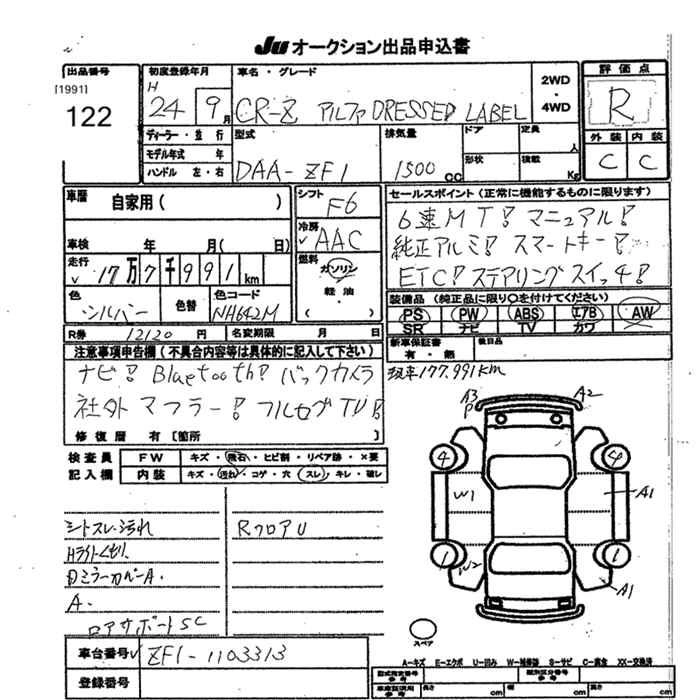 JU オークション出品申込書
出品番号
[1991]
122
初度登録年月
H
24 9月
車名・グレード
CR-Z アルファ DRESSED LABEL
2WD
・
4WD
評価点
R
外装 内装
C C
ディーラー・並行
モデル年式 年
ハンドル 左・右
型式
DAA-ZF1
排気量
1500 CC
ドア
形状
定員 人
積載 Kg
車歴 自家用( )
車検 年 月( 日)
走行
17万7千991km
シフト
F6
冷房
AAC
燃料
ガソリン
軽油
・
( )
色
シルバー
色替
色コード
NH642M
セールスポイント(正常に機能するものに限ります)
6速MT! マニュアル!
純正アルミ! スマートキー!
ETC! ステアリングスイッチ!
装備品(純正品に限り○を付けてください)
PS PW ABS エアB AW
SR ナビ TV カワ
R券 12120 円 名変期限 月 日
新車保証書
有・無
後日品
注意事項申告欄(不具合内容等は具体的に記入して下さい)
ナビ! Bluetooth! バックカメラ
社外マフラー! フルセグTV!
現車177.991km
修復歴 有〔箇所 〕
検査員
記入欄
FW キズ・飛石・ヒビ割・リペア跡・×要
内装 キズ・汚れ・コゲ・穴・スレ・キレ・破レ
シートスレ・汚れ
Hライトくもり
Dミラーカバー A.
A.
ロアサポート SC
RフロアU
A3
P
A2
4 4
W1 A1
1 1
W2 A1
スペア
A−キズ E−エクボ U−凹み W−補修跡 S−サビ C−腐食 XX−交換済
車台番号 ZF1-1103313
登録番号
型式指定番号
参考
類別区分番号
参考
車庫証明用
参考
長さ cm 幅 cm 高さ cm